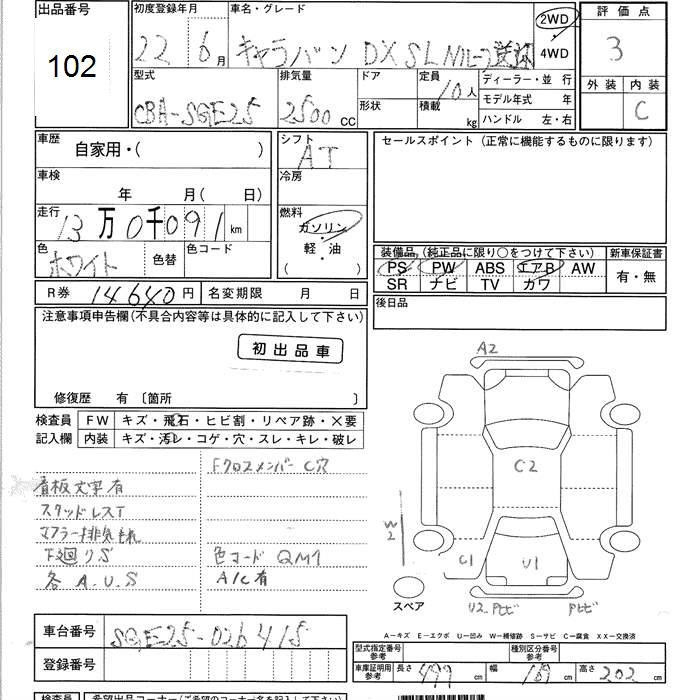 出品番号
102
初度登録年月
22 6月
車名・グレード
キャラバン DX SL
2WD
4WD
評価点
3
外装 内装
C
型式
CBA-SGE25
排気量
2500 CC
ドア
形状
定員
10人
積載
kg
ディーラー・並 行
モデル年式 年
ハンドル 左・右
車歴
自家用・( )
シフト
AT
セールスポイント(正常に機能するものに限ります)
車検
年 月( 日)
冷房
走行
13万0千091km
燃料
ガソリン
軽・油
( )
色
ホワイト
色替
色コード
装備品(純正品に限り○をつけて下さい)
新車保証書
PS PW ABS エアB AW
有・無
SR ナビ TV カワ
R券 14640円
名変期限 月 日
後日品
注意事項申告欄(不具合内容等は具体的に記入して下さい)
初出品車
修復歴 有〔箇所 〕
検査員
記入欄
FW キズ・飛石・ヒビ割・リペア跡・×要
内装 キズ・汚レ・コゲ・穴・スレ・キレ・破レ
Fクロスメンバー C穴
看板文字有
スタッドレスT
マフラー排気もれ
下廻りS
色コード QM1
各 A.U.S
A/C有
A2
C2
W2
C1
U1
スペア
U2
車台番号
SGE25-026415
登録番号
A−キズ E−エクボ U−凹み W−補修跡 S−サビ C−腐食 XX−交換済
型式指定番号
参考
種別区分番号
参考
車庫証明用
参考
長さ cm
幅 cm
高さ 202 cm
検査員
希望出品コーナー(ご希望のコーナー名を記入して下さい)